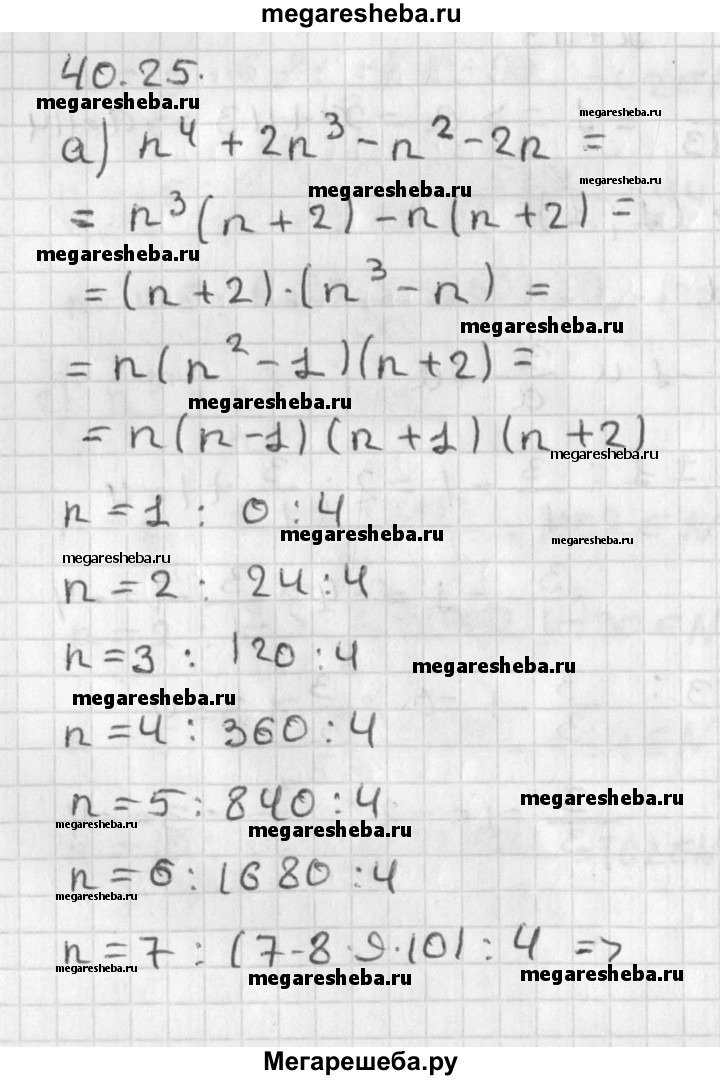 megaresheba.ru
40.25.
megaresheba.ru
megaresheba.ru
а) n⁴ + 2n³ - n² - 2n =
megaresheba.ru
megaresheba.ru
= n³(n + 2) - n(n + 2) =
megaresheba.ru
= (n + 2) · (n³ - n) =
megaresheba.ru
= n(n² - 1)(n + 2) =
megaresheba.ru
= n(n - 1)(n + 1)(n + 2)
megaresheba.ru
n = 1 : 0 : 4
megaresheba.ru
megaresheba.ru
megaresheba.ru
n = 2 : 24 : 4
n = 3 : 120 : 4
megaresheba.ru
megaresheba.ru
n = 4 : 360 : 4
n = 5 : 840 : 4
megaresheba.ru
megaresheba.ru
megaresheba.ru
n = 6 : 1680 : 4
megaresheba.ru
n = 7 : (7-8·9·10) : 4 =>
megaresheba.ru
megaresheba.ru
megaresheba.ru
Мегарешеба.ру